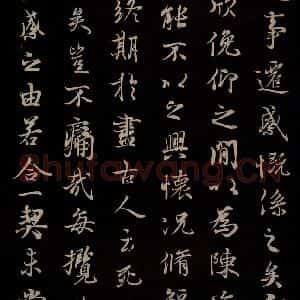 事遷感慨係之矣
欣俛仰之間以為陳
能不以之興懷況脩短
終期於盡古人云死
矣豈不痛哉每攬
感之由若合一契未嘗
Shufawang.CN